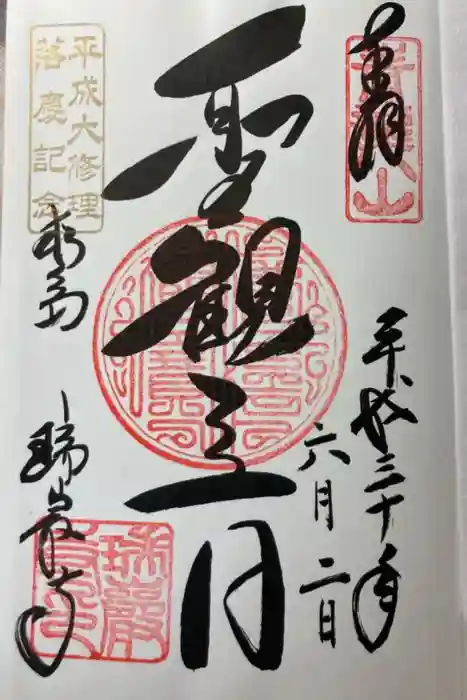 奉拝
青龍山
平成三十年
六月二日
聖観音
平成大修理
落慶記念
松島
瑞巌寺